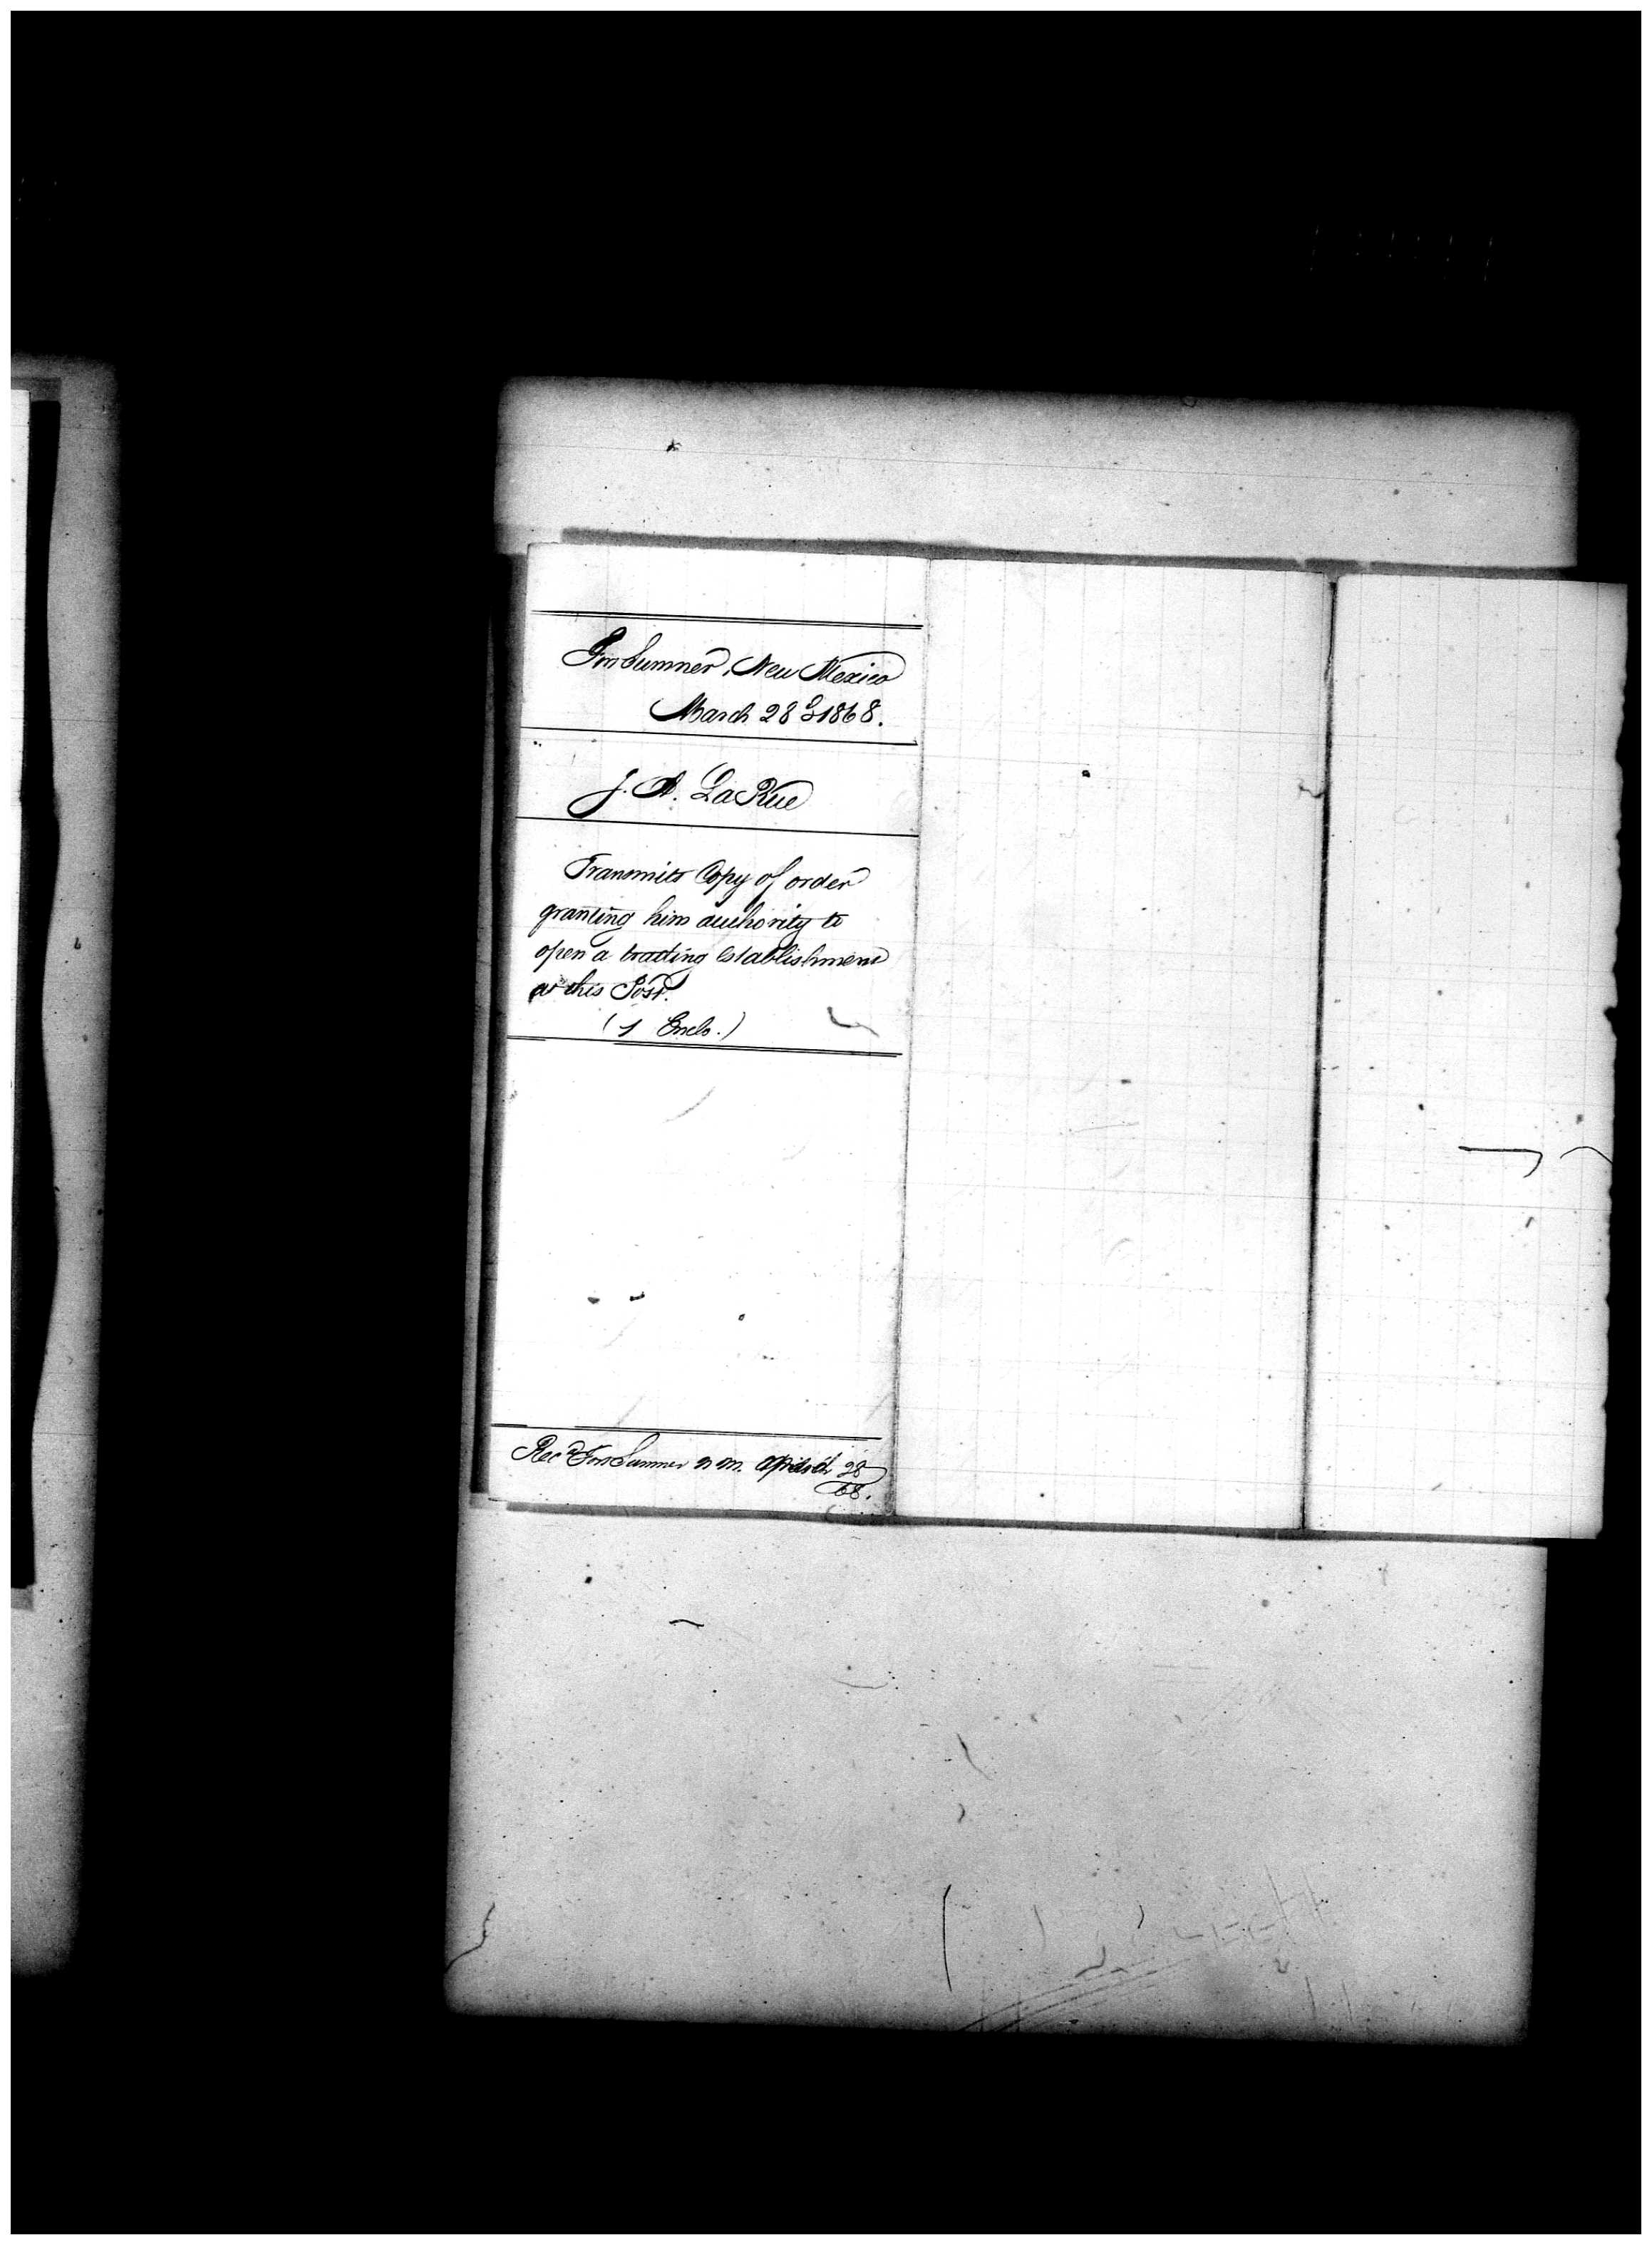 Fort Sumner, New Mexico
March 28 1868.
J. A. LaRue
Transmits Copy of order
granting him authority to
open a trading Establishment
at this Post.
(1 Enclo.)
Recd Fort Sumner N. M. 28
68.